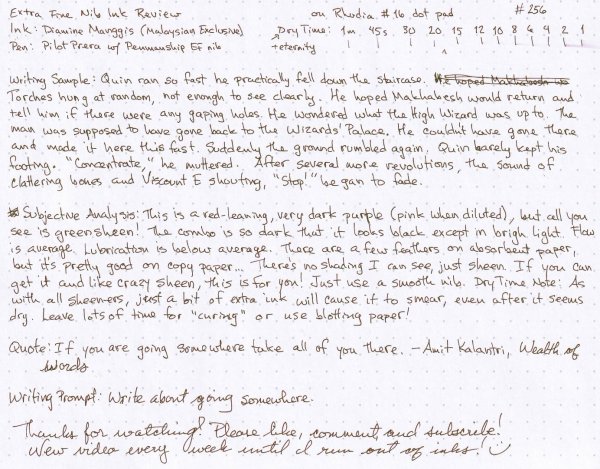 Extra Fine Nib Ink Review on Rhodia #16 dot pad #256
Ink: Diamine Manggis (Malaysian Exclusive) Dry Time: 1m 45s 30 20 15 12 10 8 6 4 2 1
Pen: Pilot Prera w/ Penmanship EF nib + eternity
Writing Sample: Quin ran so fast he practically fell down the staircase. He hoped Makhabesh wo
Torches hung at random, not enough to see clearly. He hoped Makhabesh would return and
tell him if there were any gaping holes. He wondered what the High Wizard was up to. The
man was supposed to have gone back to the Wizards' Palace. He couldn't have gone there
and made it here this fast. Suddenly the ground rumbled again. Quin barely kept his
footing. "Concentrate," he muttered. After several more revolutions, the sound of
clattering bones and Viscount E shouting, "Stop!" began to fade.
Subjective Analysis: This is a red-leaning, very dark purple (pink when diluted), but all you
see is green sheen! The combo is so dark that it looks black except in brigh light. Flow
is average. Lubrication is below average. There are a few feathers on absorbent paper,
but it's pretty good on copy paper... There's no shading I can see, just sheen. If you can
get it and like crazy sheen, this is for you! Just use a smooth nib. Dry Time Note: As
with all sheeners, just a bit of extra ink will cause it to smear, even after it seems
dry. Leave lots of time for "curing" or use blotting paper!
Quote: If you are going somewhere take all of you there. - Amit Kalantri, Wealth of
Words
Writing Prompt: Write about going somewhere.
Thanks for watching! Please like, comment, and subscribe!
New video every week until I run out of inks!